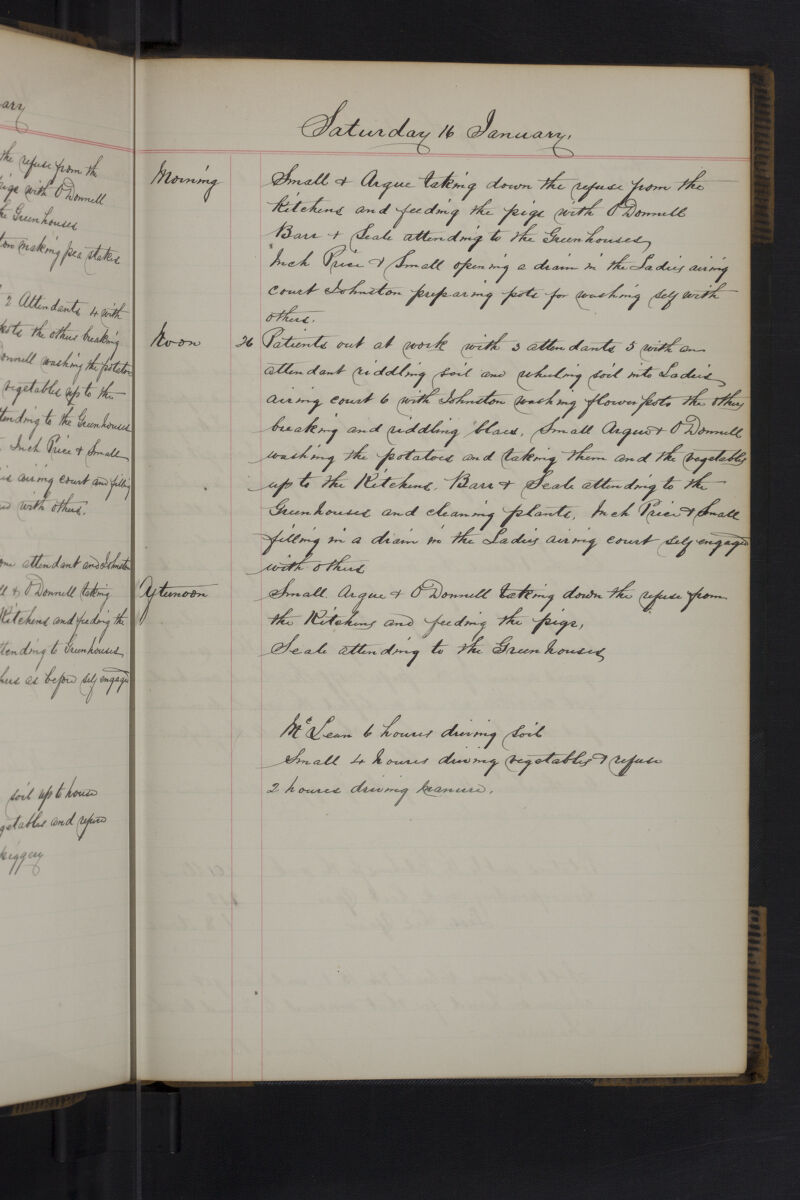 ary
the refuse from the
pigs with O'Donnell
the Greenhouses
making pea stakes
2 Attendants 4 with
pots the others breaking
Donnell washing the potatoes
vegetables up to the
ttending to the Greenhouses
Inch Price & Small
airing court and filling
with others.
one attendant and Johnston
& O'Donnell taking
Kitchens and feeding the
ttending to Greenhouses,
as before self engaged
soil up to house
getables and refuse
piggery
Saturday 16 January.
Morning
Small & Argue taking down the refuse from the
Kitchens and feeding the pigs with O'Donnell
Barr & Seale attending to the Greenhouses,
Inch Price & Small opening a drain in the Ladies airing
court Johnston preparing pots for washing self with
others.
Noon 26 Patients out at work with 3 attendants 5 with an
attendant riddling soil and wheeling soil into Ladies
airing court 6 with Johnston washing flower pots the others
breaking and riddling blaes. Small Argue & O'Donnell
washing the potatoes and taking them and the vegetables
up to the Kitchens. Barr & Seale attending to the
Greenhouses and cleaning plants. Inch Price & Small
filling in a drain in the Ladies airing court self engaged
with others
Afternoon Small Argue & O'Donnell taking down the refuse from
the Kitchens and feeding the pigs,
Seale attending to the Greenhouses,
McLean 6 houres driving soil
Small 4 houres driving vegetables & refuse
2 houres driving manure.